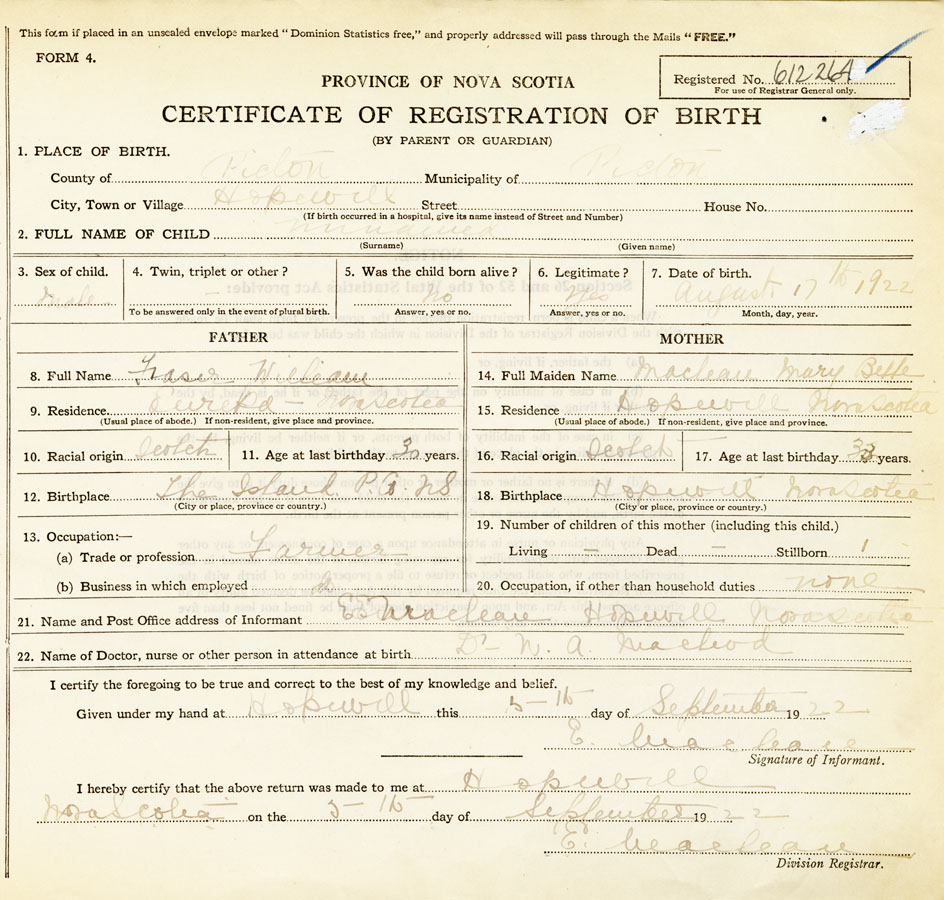 This form if placed in an unsealed envelope marked "Dominion Statistics free," and properly addressed will pass through the Mails "FREE."
FORM 4.
Registered No. 612264
For use of Registrar General only.
PROVINCE OF NOVA SCOTIA
CERTIFICATE OF REGISTRATION OF BIRTH
(BY PARENT OR GUARDIAN)
1. PLACE OF BIRTH.
County of Pictou Municipality of Pictou
City, Town or Village Hopewell Street House No.
(If birth occurred in a hospital, give its name instead of Street and Number)
2. FULL NAME OF CHILD Unnamed
(Surname) (Given name)
3. Sex of child. 4. Twin, triplet or other? 5. Was the child born alive? 6. Legitimate? 7. Date of birth.
male — No Yes August 17th 1922
To be answered only in the event of plural birth. Answer, yes or no. Answer, yes or no. Month, day, year.
FATHER MOTHER
8. Full Name Fraser William 14. Full Maiden Name Maclean Mary Belle
9. Residence Eureka Nova Scotia 15. Residence Hopewill Nova Scotia
(Usual place of abode.) If non-resident, give place and province. (Usual place of abode.) If non-resident, give place and province.
10. Racial origin Scotch 11. Age at last birthday 30 years. 16. Racial origin Scotch 17. Age at last birthday 33 years.
12. Birthplace The Island P. Co. NS 18. Birthplace Hopewill Nova Scotia
(City or place, province or country.) (City or place, province or country.)
13. Occupation:— 19. Number of children of this mother (including this child.)
(a) Trade or profession Farmer Living — Dead — Stillborn 1
(b) Business in which employed 20. Occupation, if other than household duties none
21. Name and Post Office address of Informant E. Maclean Hopewill Nova Scotia
22. Name of Doctor, nurse or other person in attendance at birth Dr W. A. Macleod
I certify the foregoing to be true and correct to the best of my knowledge and belief.
Given under my hand at Hopewill this 5-th day of September 1922
E. Maclean
Signature of Informant.
I hereby certify that the above return was made to me at Hopewill
Nova Scotia on the 5-th day of September 1922
E. Maclean
Division Registrar.